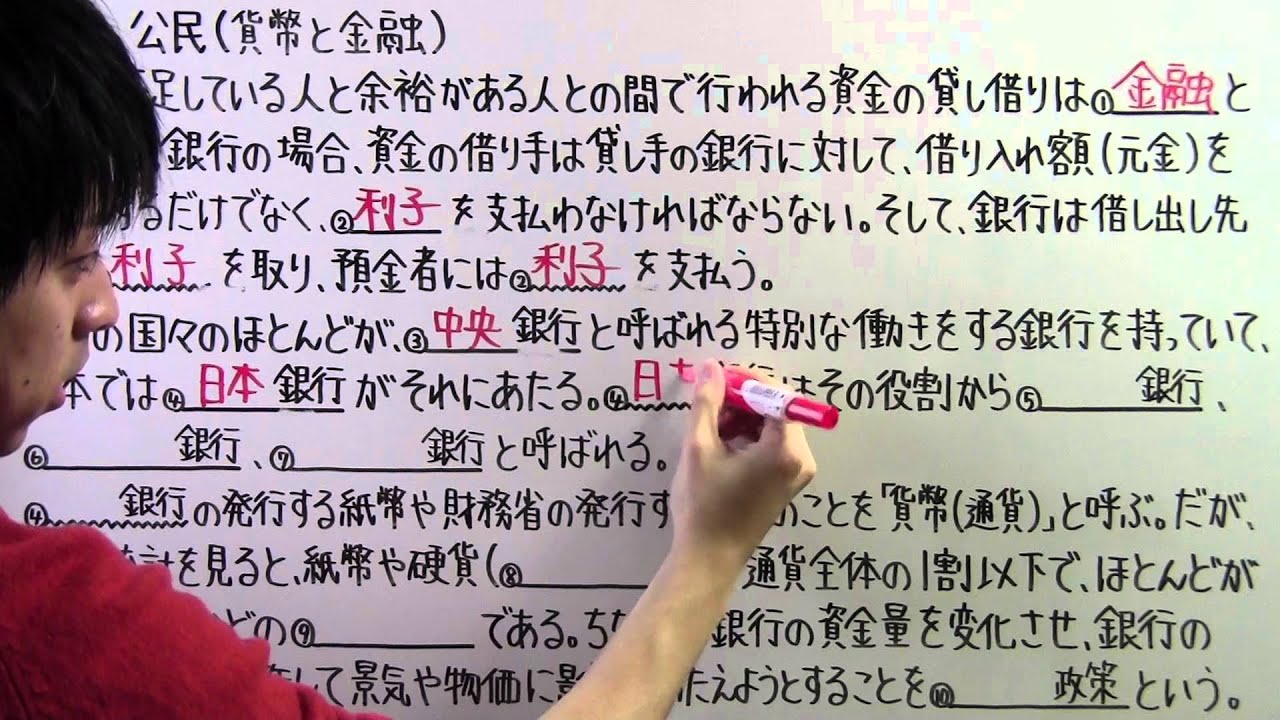 公民(貨幣と金融)
足している人と余裕がある人との間で行われる資金の貸し借りは①金融と
銀行の場合、資金の借り手は貸し手の銀行に対して、借り入れ額(元金)を
るだけでなく、②利子を支払わなければならない。そして、銀行は借し出し先
利子を取り、預金者には②利子を支払う。
の国々のほとんどが、③中央銀行と呼ばれる特別な働きをする銀行を持っていて、
本では④日本銀行がそれにあたる。④日 はその役割から⑤ 銀行、
⑥ 銀行、⑦ 銀行と呼ばれる。
④ 銀行の発行する紙幣や財務省の発行す のことを「貨幣(通貨)」と呼ぶ。だが、
計を見ると、紙幣や硬貨(⑧ 通貨全体の1割以下で、ほとんどが
どの⑨ である。ちな 銀行の資金量を変化させ、銀行の
して景気や物価に影 たえようとすることを⑩ 政策という。